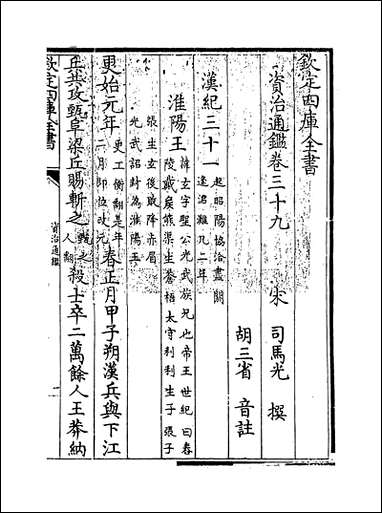 欽定四庫全書
資治通鑑卷三十九
宋 司馬光 撰
胡三省 音註
漢紀三十一 起昭陽協洽盡閼逢涒灘凡二年
淮陽王 諱玄字聖公光武族兄也帝王世紀曰舂陵戴侯熊渠生蒼梧太守利利生子張子
張生玄後敗降赤眉光武詔封為淮陽王
更始元年 更工衡翻是年二月即位改元 春正月甲子朔漢兵與下江
兵共攻甄阜梁丘賜斬之 甄之人翻 殺士卒二萬餘人王莽納
欽定四庫全書
資治通鑑
一